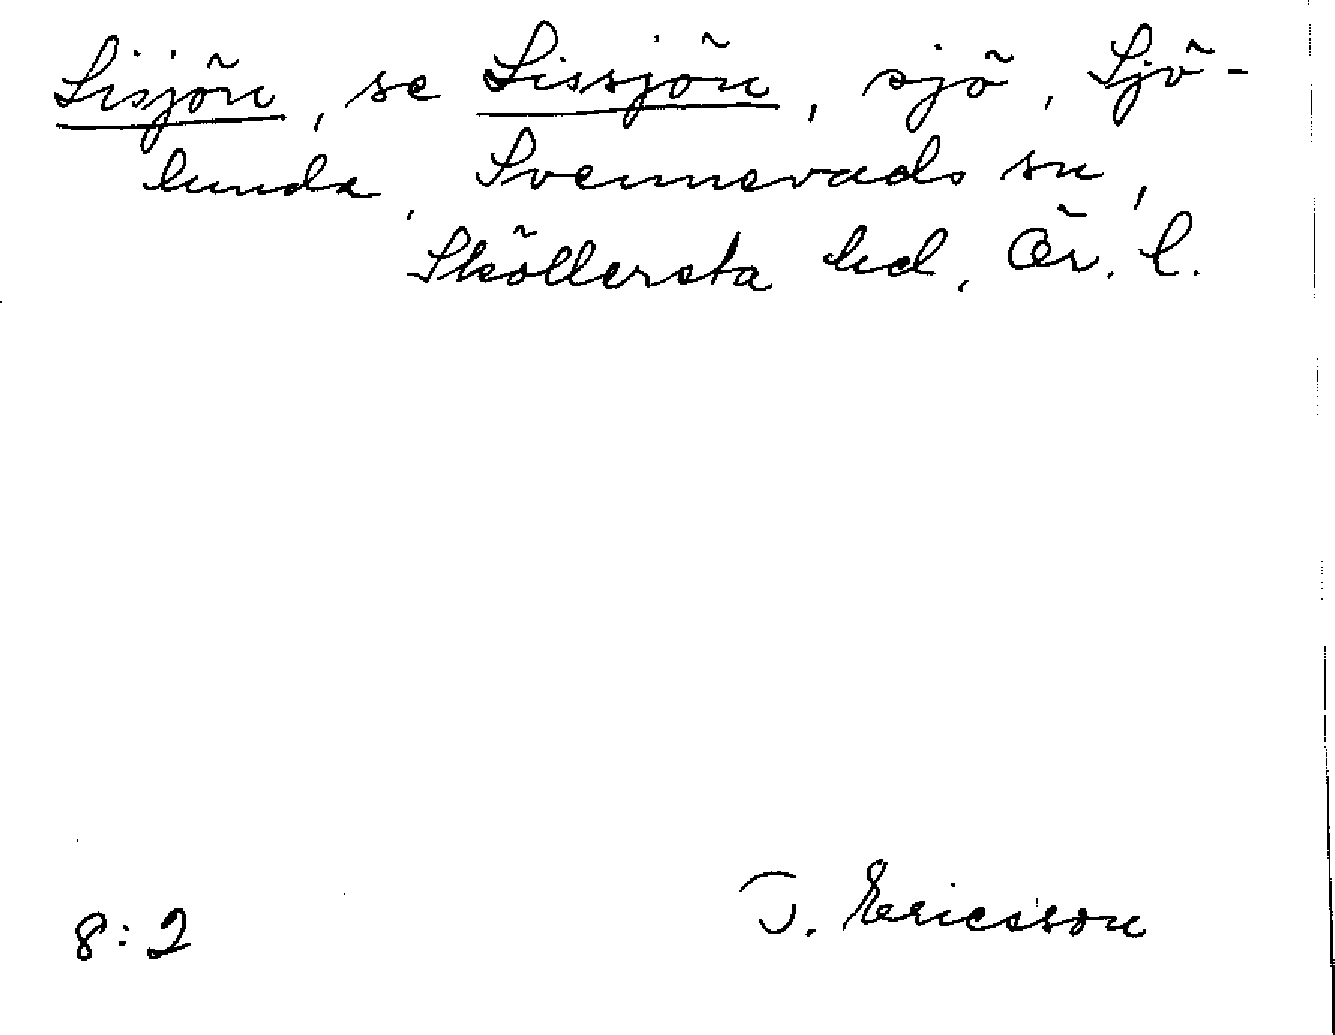 Lisjön, se Lissjön, sjö, Sjö-
lunda, Svennevads sn,
Sköllersta hd, Ör. l.
8:2
T. Ericsson